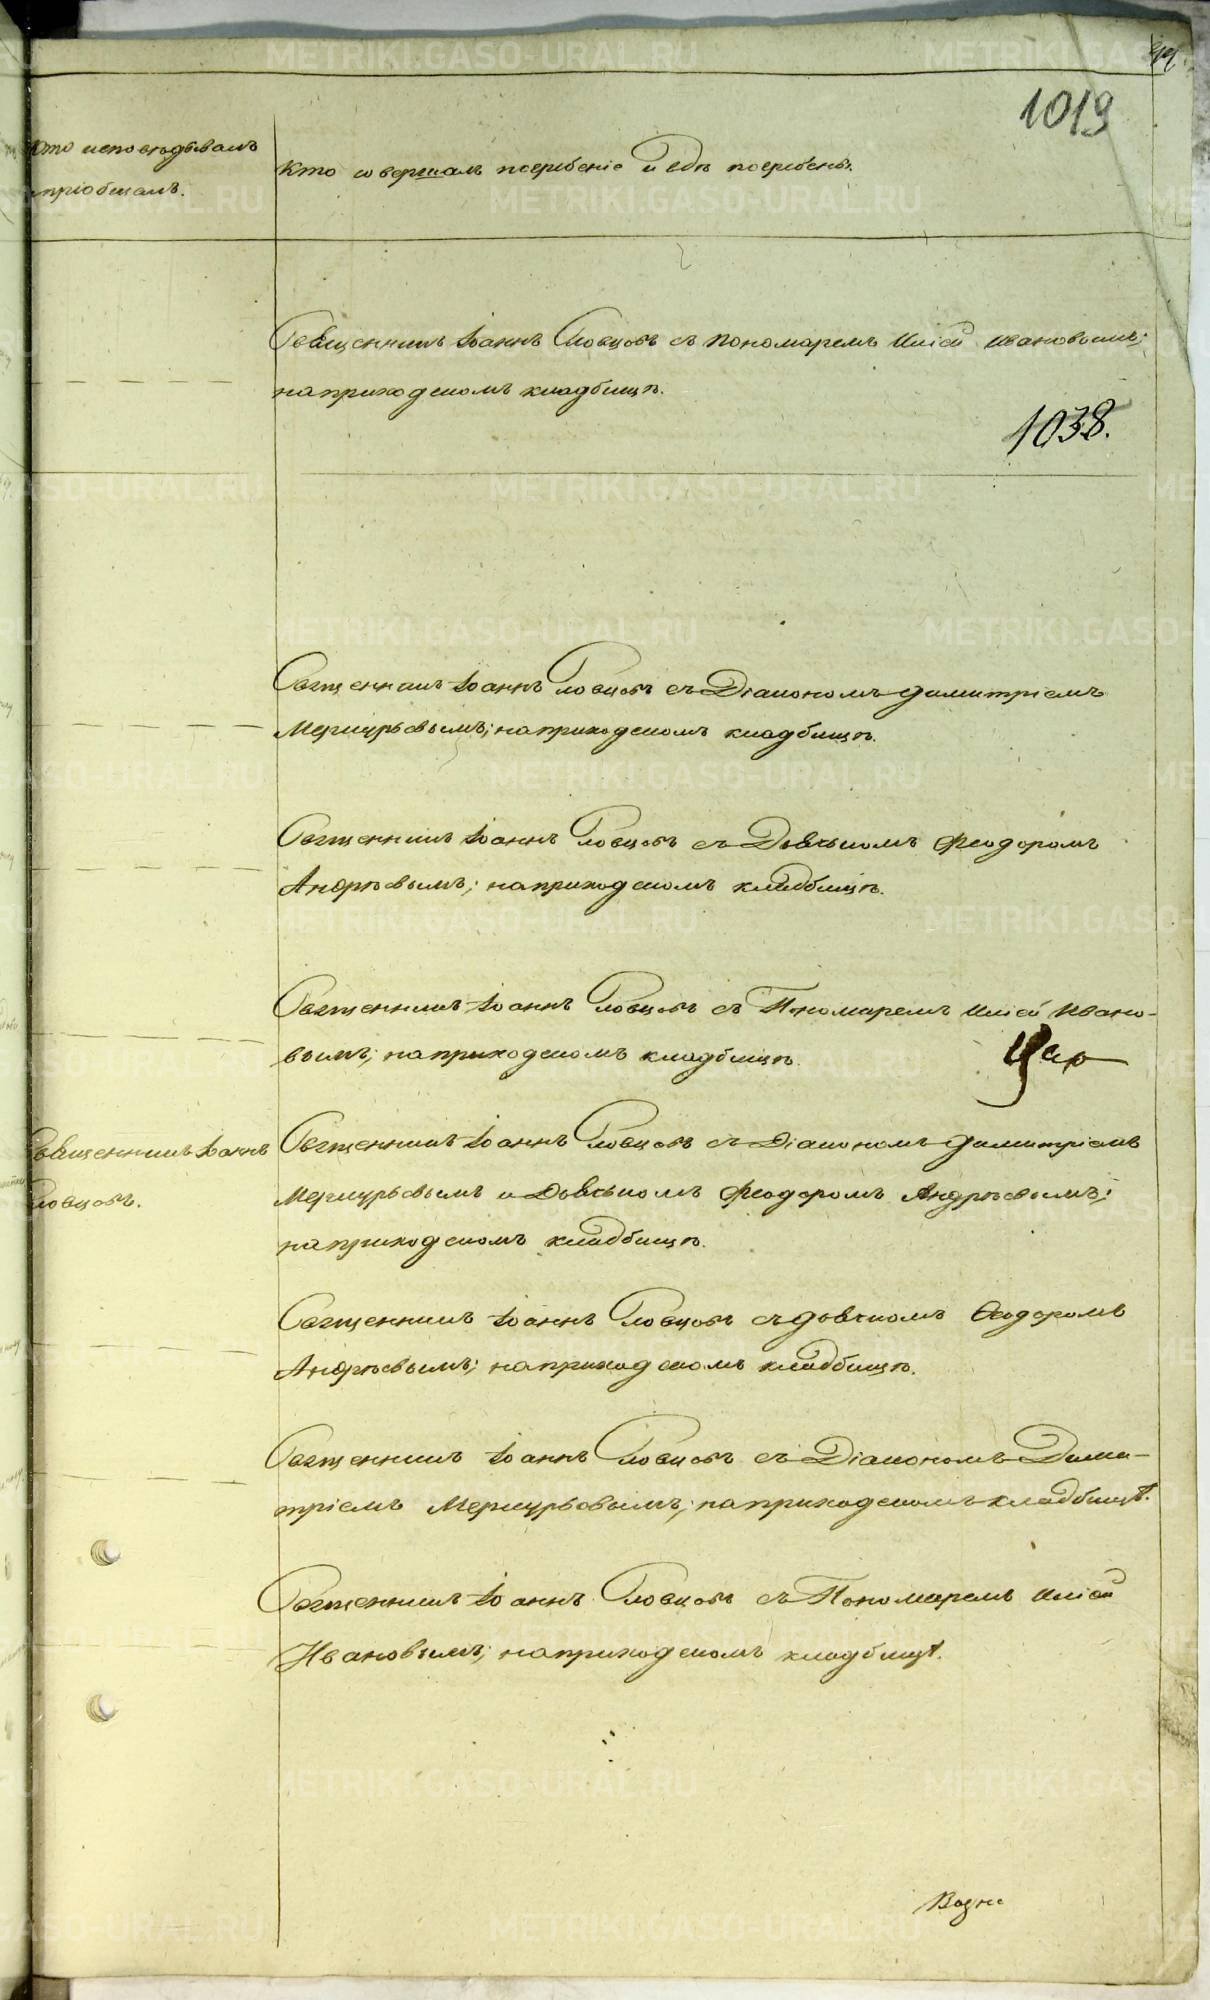 1019
Кто исповѣдывалъ
и пріобщалъ.
Кто совершалъ погребеніе и гдѣ погребены.
Священникъ Іоаннъ Словцовъ съ пономаремъ Иліей Ивановымъ;
на приходскомъ кладбищѣ.
1038.
Священникъ Іоаннъ Словцовъ съ Діакономъ Димитріемъ
Меркурьевымъ; на приходскомъ кладбищѣ.
Священникъ Іоаннъ Словцовъ съ Дьячкомъ Феодоромъ
Андрѣевымъ; на приходскомъ кладбищѣ.
Священникъ Іоаннъ Словцовъ съ Пономаремъ Иліей Ивано-
вымъ; на приходскомъ кладбищѣ.
Священникъ Іоаннъ
Словцовъ.
Священникъ Іоаннъ Словцовъ съ Діакономъ Димитріемъ
Меркурьевымъ и Дьячкомъ Феодоромъ Андрѣевымъ;
на приходскомъ кладбищѣ.
Священникъ Іоаннъ Словцовъ съ дьячкомъ Ѳеодоромъ
Андрѣевымъ; на приходскомъ кладбищѣ.
Священникъ Іоаннъ Словцовъ съ Діакономъ Дими-
тріемъ Меркурьевымъ; на приходскомъ кладбищѣ.
Священникъ Іоаннъ Словцовъ съ Пономаремъ Иліей
Ивановымъ; на приходскомъ кладбищѣ.
METRIKI.GASO-URAL.RU